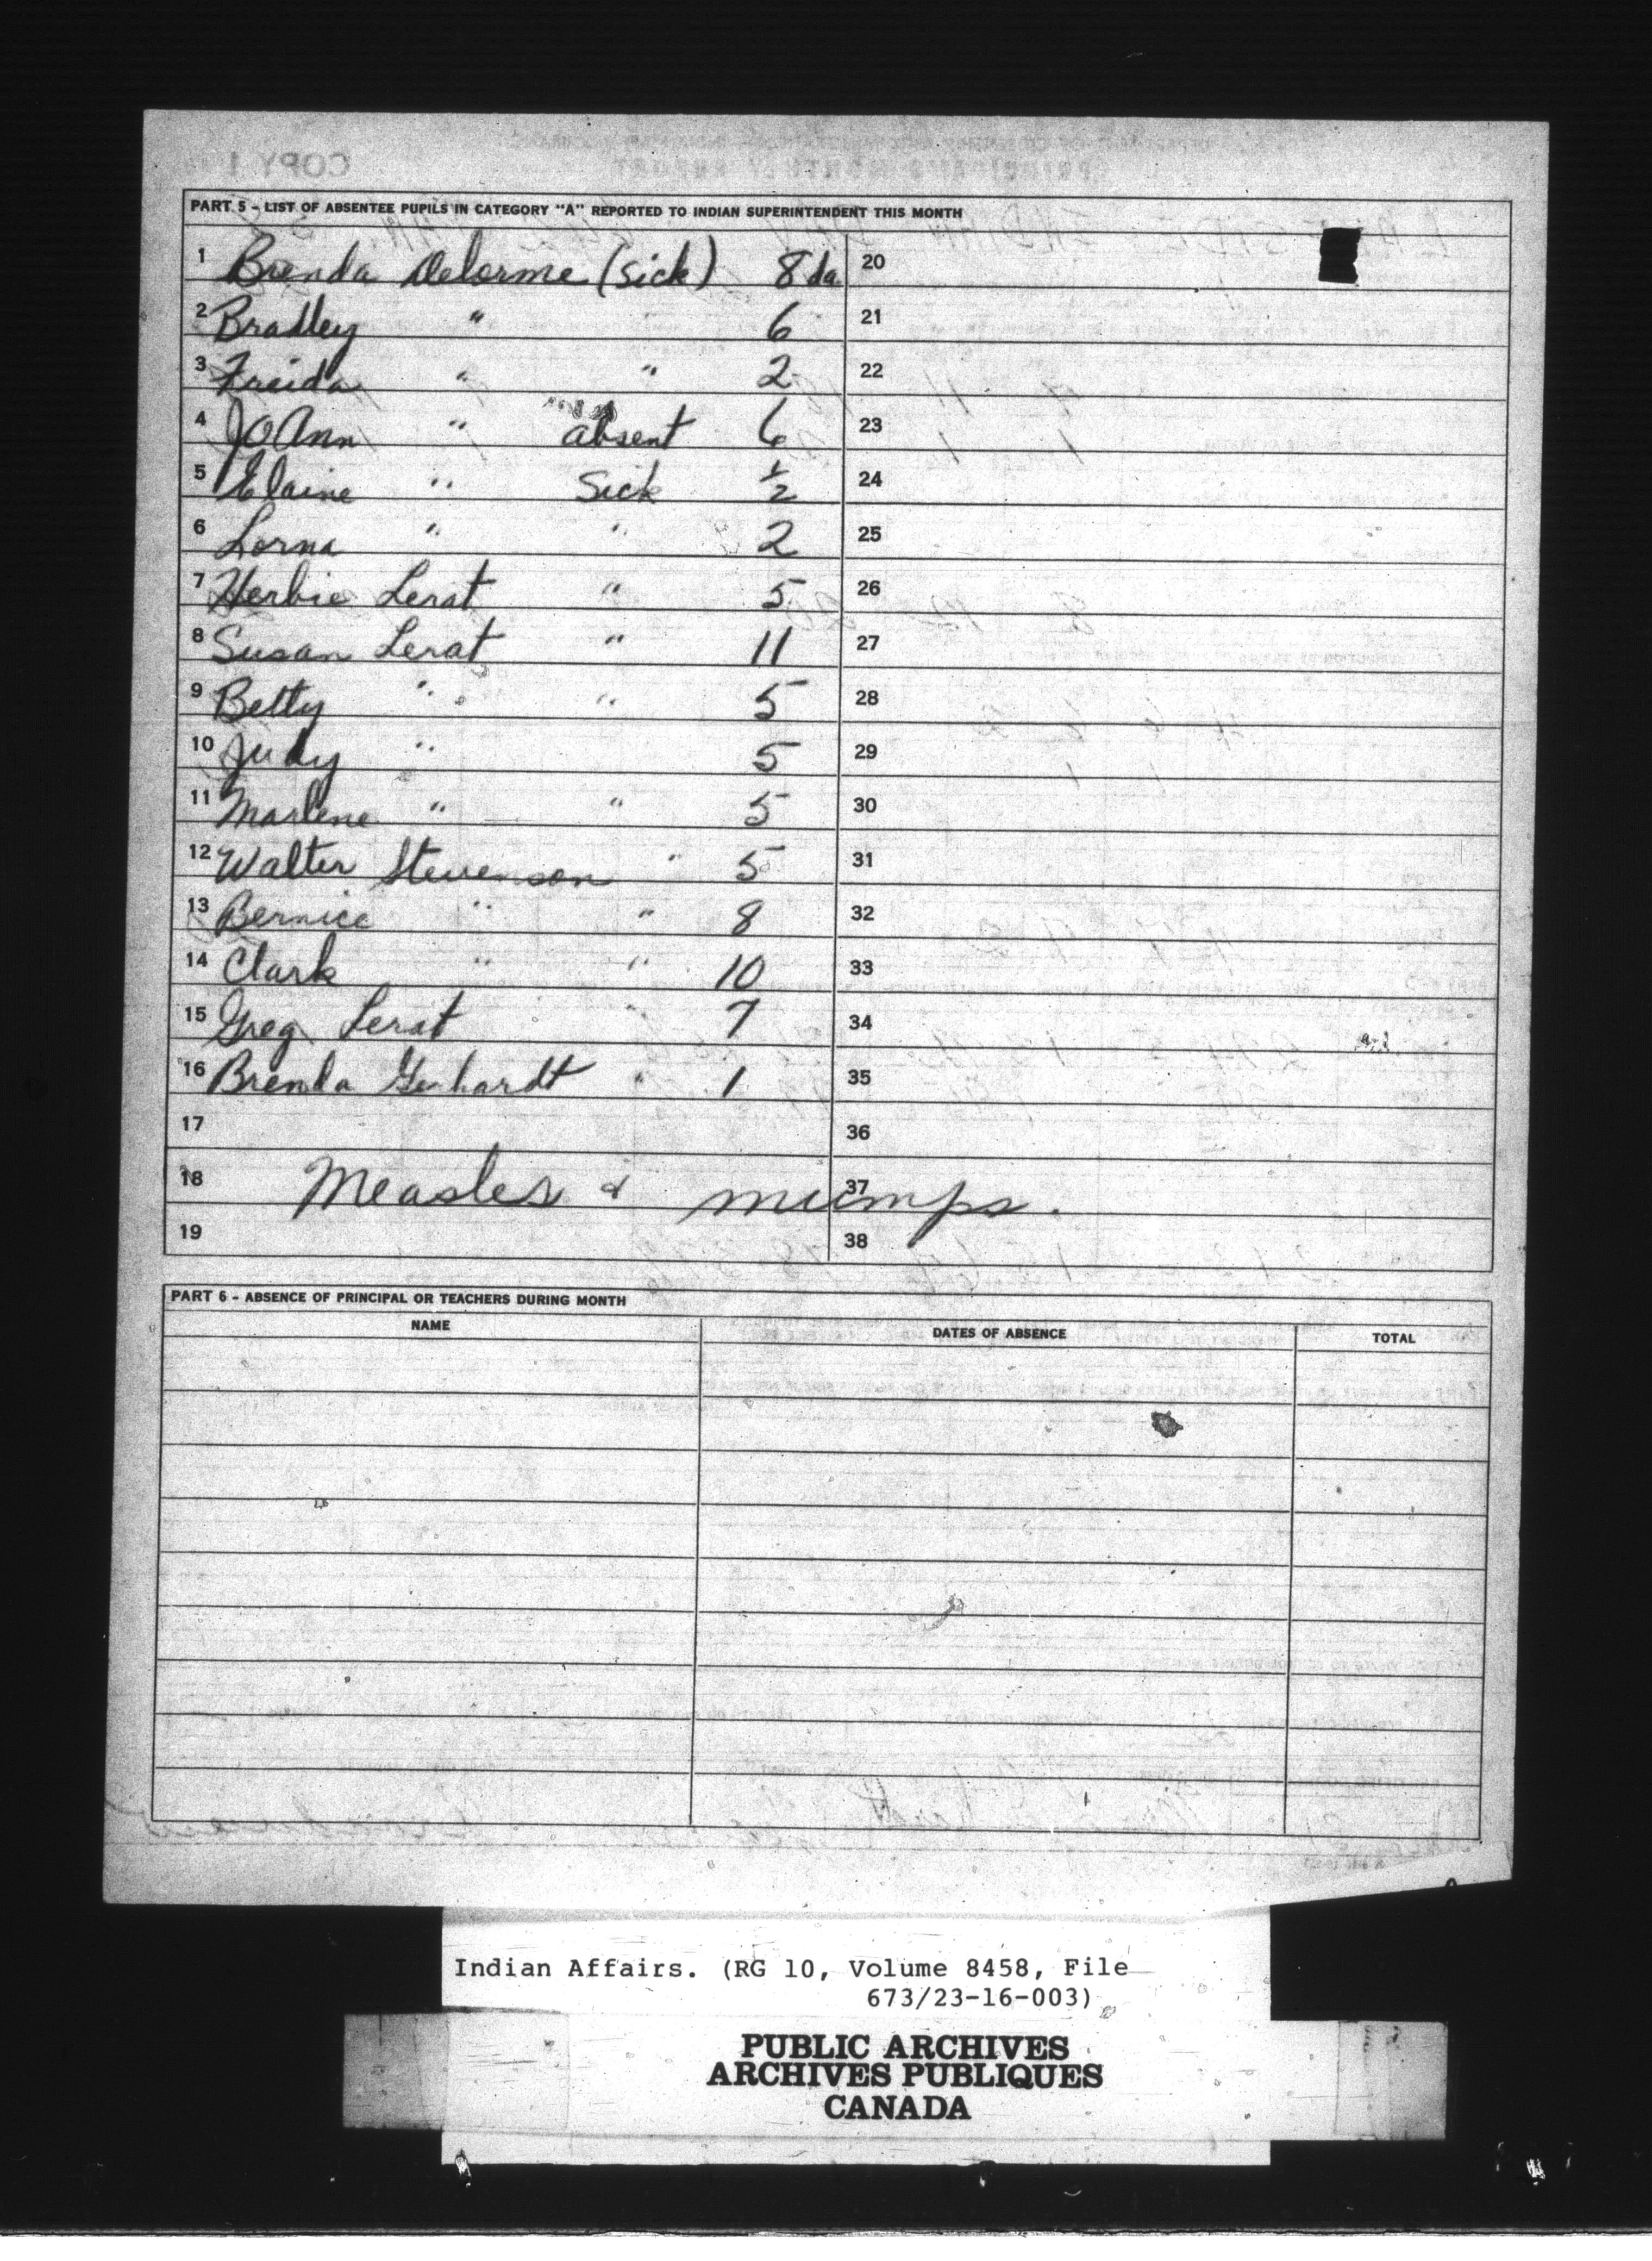 COPY 1
PART 5 - LIST OF ABSENTEE PUPILS IN CATEGORY "A" REPORTED TO INDIAN SUPERINTENDENT THIS MONTH
1 Brenda Delorme (sick) 8 da.
2 Bradley " 6
3 Freida " " 2
4 JoAnn " absent 6
5 Elaine " Sick 1/2
6 Lorna " " 2
7 Herbie Lerat " 5
8 Susan Lerat " 11
9 Betty " " 5
10 Judy " 5
11 Marlene " " 5
12 Walter Stevenson " 5
13 Bernice " " 8
14 Clark " " 10
15 Greg Lerat " 7
16 Brenda Gerhardt " 1
17
18 Measles & mumps.
19
20
21
22
23
24
25
26
27
28
29
30
31
32
33
34
35
36
37
38
PART 6 - ABSENCE OF PRINCIPAL OR TEACHERS DURING MONTH
NAME DATES OF ABSENCE TOTAL
Indian Affairs. (RG 10, Volume 8458, File
673/23-16-003)
PUBLIC ARCHIVES
ARCHIVES PUBLIQUES
CANADA